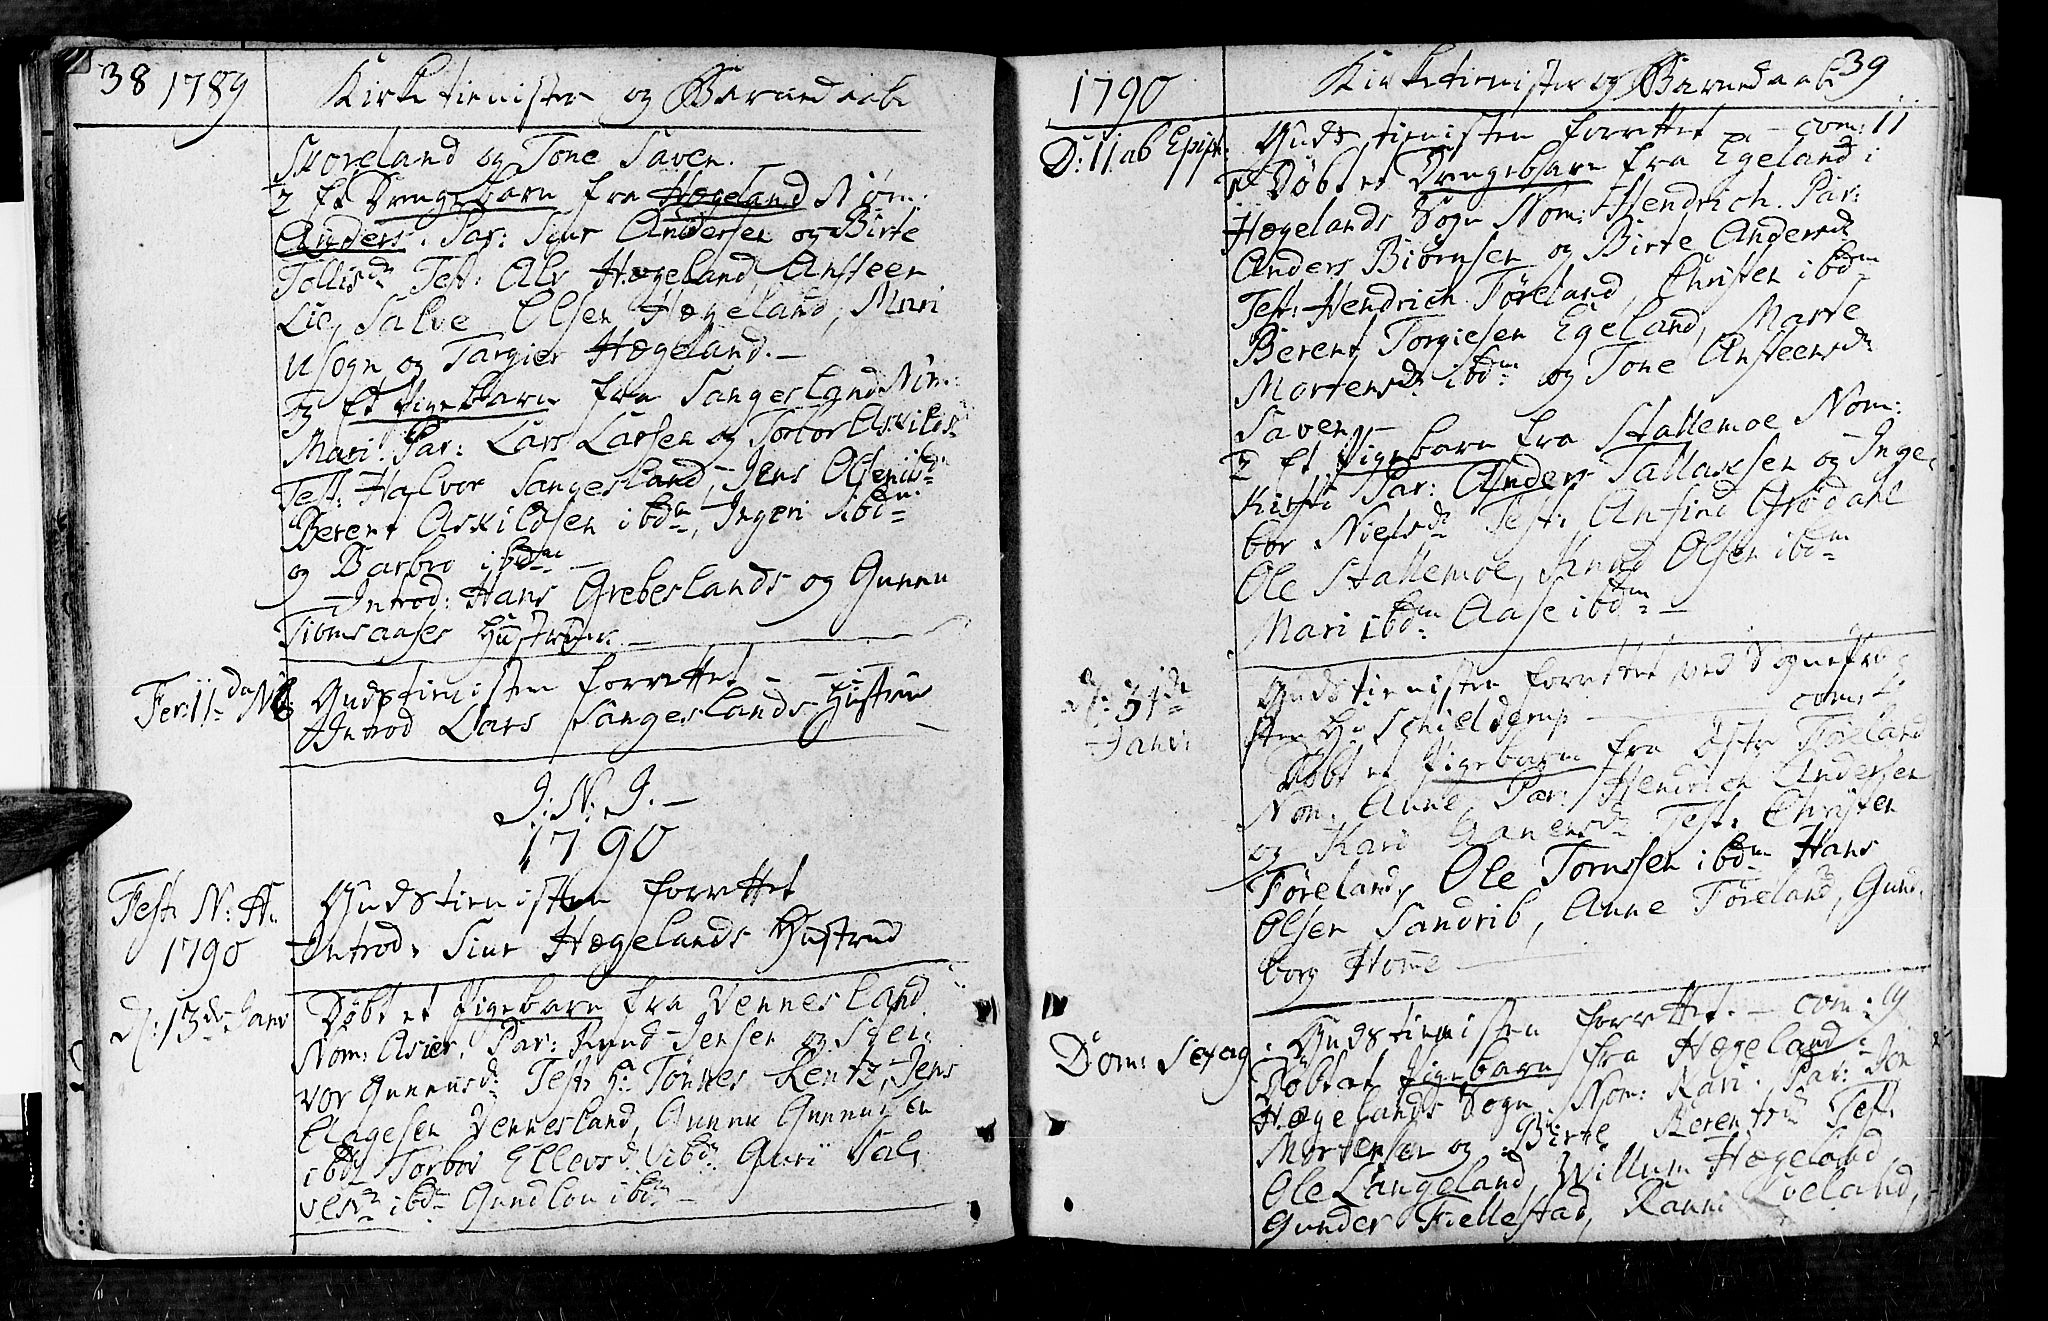 38 1789
Kirke tienister og Barnedaab
Skoreland og Tone Saven.
2 Et Drengebarn fra Hægeland Nom:
Anders. Par: Siur Andersen og Birte
Tollisdr Test: Alv Hægeland, Ansteen
Lie, Salve Olsen Hægeland, Mari
Usogn og Targier Hægeland.
3 Et Pigebarn fra Sangesland Nom:
Mari. Par: Lars Larsen og Torbor Askildsdr
Test: Halvor Sangesland, Jens Olsen ibdm
Berent Askildsen ibdm, Ingeri ibdm
og Barbro ibdm
Introd: Hans Grebeslands og Gunnu
Hustruer
Fer: 11da Nb
Gudstienisten forrettet
Introd Lars Sangeslands Hustru
J: N: J.
1790
Fest: N: A:
Gudstienisten forrettet
1790
Introd: Siur Hægelands Hustrue
D: 13de Janv
Døbt et Pigebarn fra Vennesland
Nom: Par: Knud Jensen og
vor Gunnusdr Test: Hr Tønnes Rentz, Jens
Elagesen Vennesland, Gunnu Gunnusen
ibdm Torbor Ellevsdr ibdm Guri Sal-
vesdr ibdm Gundlou ibdm
1790
Kirketienister og Barnedaab 39
D: 11 ab Epiph:
Gudstienisten forrettet - com: 11
Døbt et Drengebarn fra Egeland i
Hægelands Sogn Nom: Hendrich. Par:
Anders Biørnsen og Birte Andersdr
Test: Hendrich Føreland, Christen ibdm
Berent Torgiesen Egeland, Marte
Mortensdr ibdm og Tone Ansteensdr
Saven
2 Et Pigebarn fra Stallemoe Nom:
Kirsti Par: Anders Tallaksen og Inge-
bor Nielsdr Test: Anfind Grødahl
Ole Stallemoe, Knud Olsen ibdm
Mari ibdm Aase ibdm
D: 31de
Janv:
Gudstienisten forrettet ved Sognepræ-
sten Hr Schielderup com:
Døbt et Pigebarn fra Føreland
Nom: Anne, Par: Hendrich Andersen
og Kari Test: Christen
Føreland, Ole Tornssen ibdm Hans
Olsen Sandrib, Anne Føreland, Gund-
borg Home
Dom: Sexag:
Gudstienisten forrettet. - com: 19
Døbt et Pigebarn fra Hægeland i
Hægelands Sogn Nom: Kari. Par: Jon
Mortensen og Birte Berentsdr Test:
Ole Langeland, Willum Hægeland,
Gunder Fiellestad, Ranni Loeland,